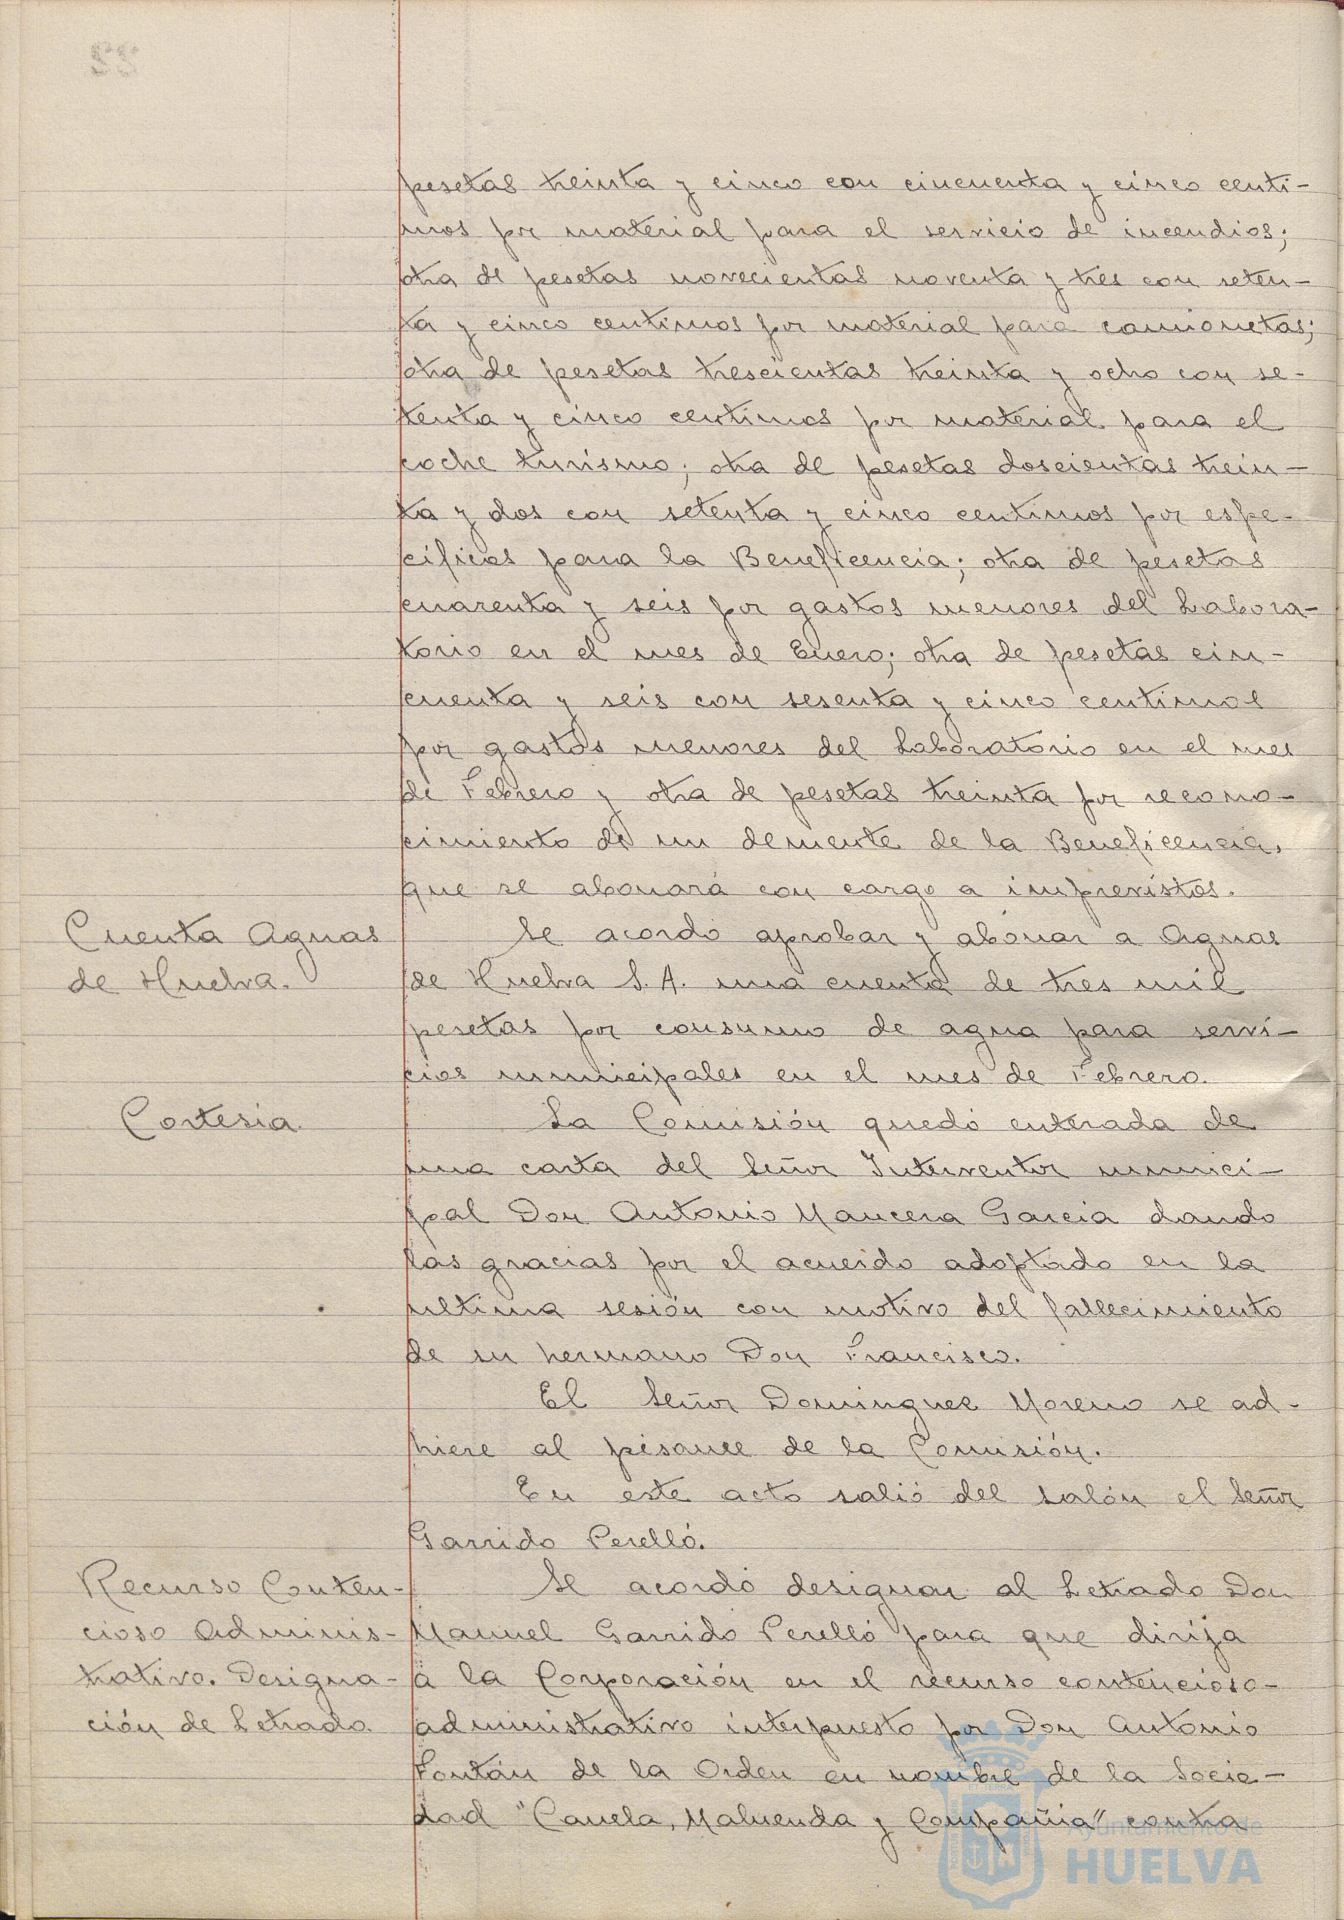 pesetas treinta y cinco con cincuenta y cinco centi-
mos por material para el servicio de incendios;
otra de pesetas novecientas noventa y tres con seten-
ta y cinco centimos por material para camionetas;
otra de pesetas trescientas treinta y ocho con se-
tenta y cinco centimos por material para el
coche turismo; otra de pesetas doscientas trein-
ta y dos con setenta y cinco centimos por espe-
cificos para la Beneficencia; otra de pesetas
cuarenta y seis por gastos menores del Labora-
torio en el mes de Enero; otra de pesetas cin-
cuenta y seis con sesenta y cinco centimos
por gastos menores del Laboratorio en el mes
de Febrero y otra de pesetas treinta por recono-
cimiento de un demente de la Beneficencia,
que se abonará con cargo a imprevistos.
Cuenta Aguas
de Huelva.
Se acordó aprobar y abonar a Aguas
de Huelva S. A. una cuenta de tres mil
pesetas por consumo de agua para servi-
cios municipales en el mes de Febrero.
Cortesia.
La Comisión quedó enterada de
una carta del Señor Interventor munici-
pal Don Antonio Mancera Garcia dando
las gracias por el acuerdo adoptado en la
ultima sesión con motivo del fallecimiento
de su hermano Don Francisco.
El Señor Dominguez Moreno se ad-
hiere al pésame de la Comisión.
En este acto salió del salón el Señor
Garrido Perelló.
Recurso Conten-
cioso Adminis-
trativo. Designa-
ción de Letrado.
Se acordó designar al Letrado Don
Manuel Garrido Perelló para que dirija
a la Corporación en el recurso contencioso-
administrativo interpuesto por Don Antonio
Fontán de la Orden en nombre de la Socie-
dad "Canela, Maluenda y Compañia" contra
Ayuntamiento de
HUELVA